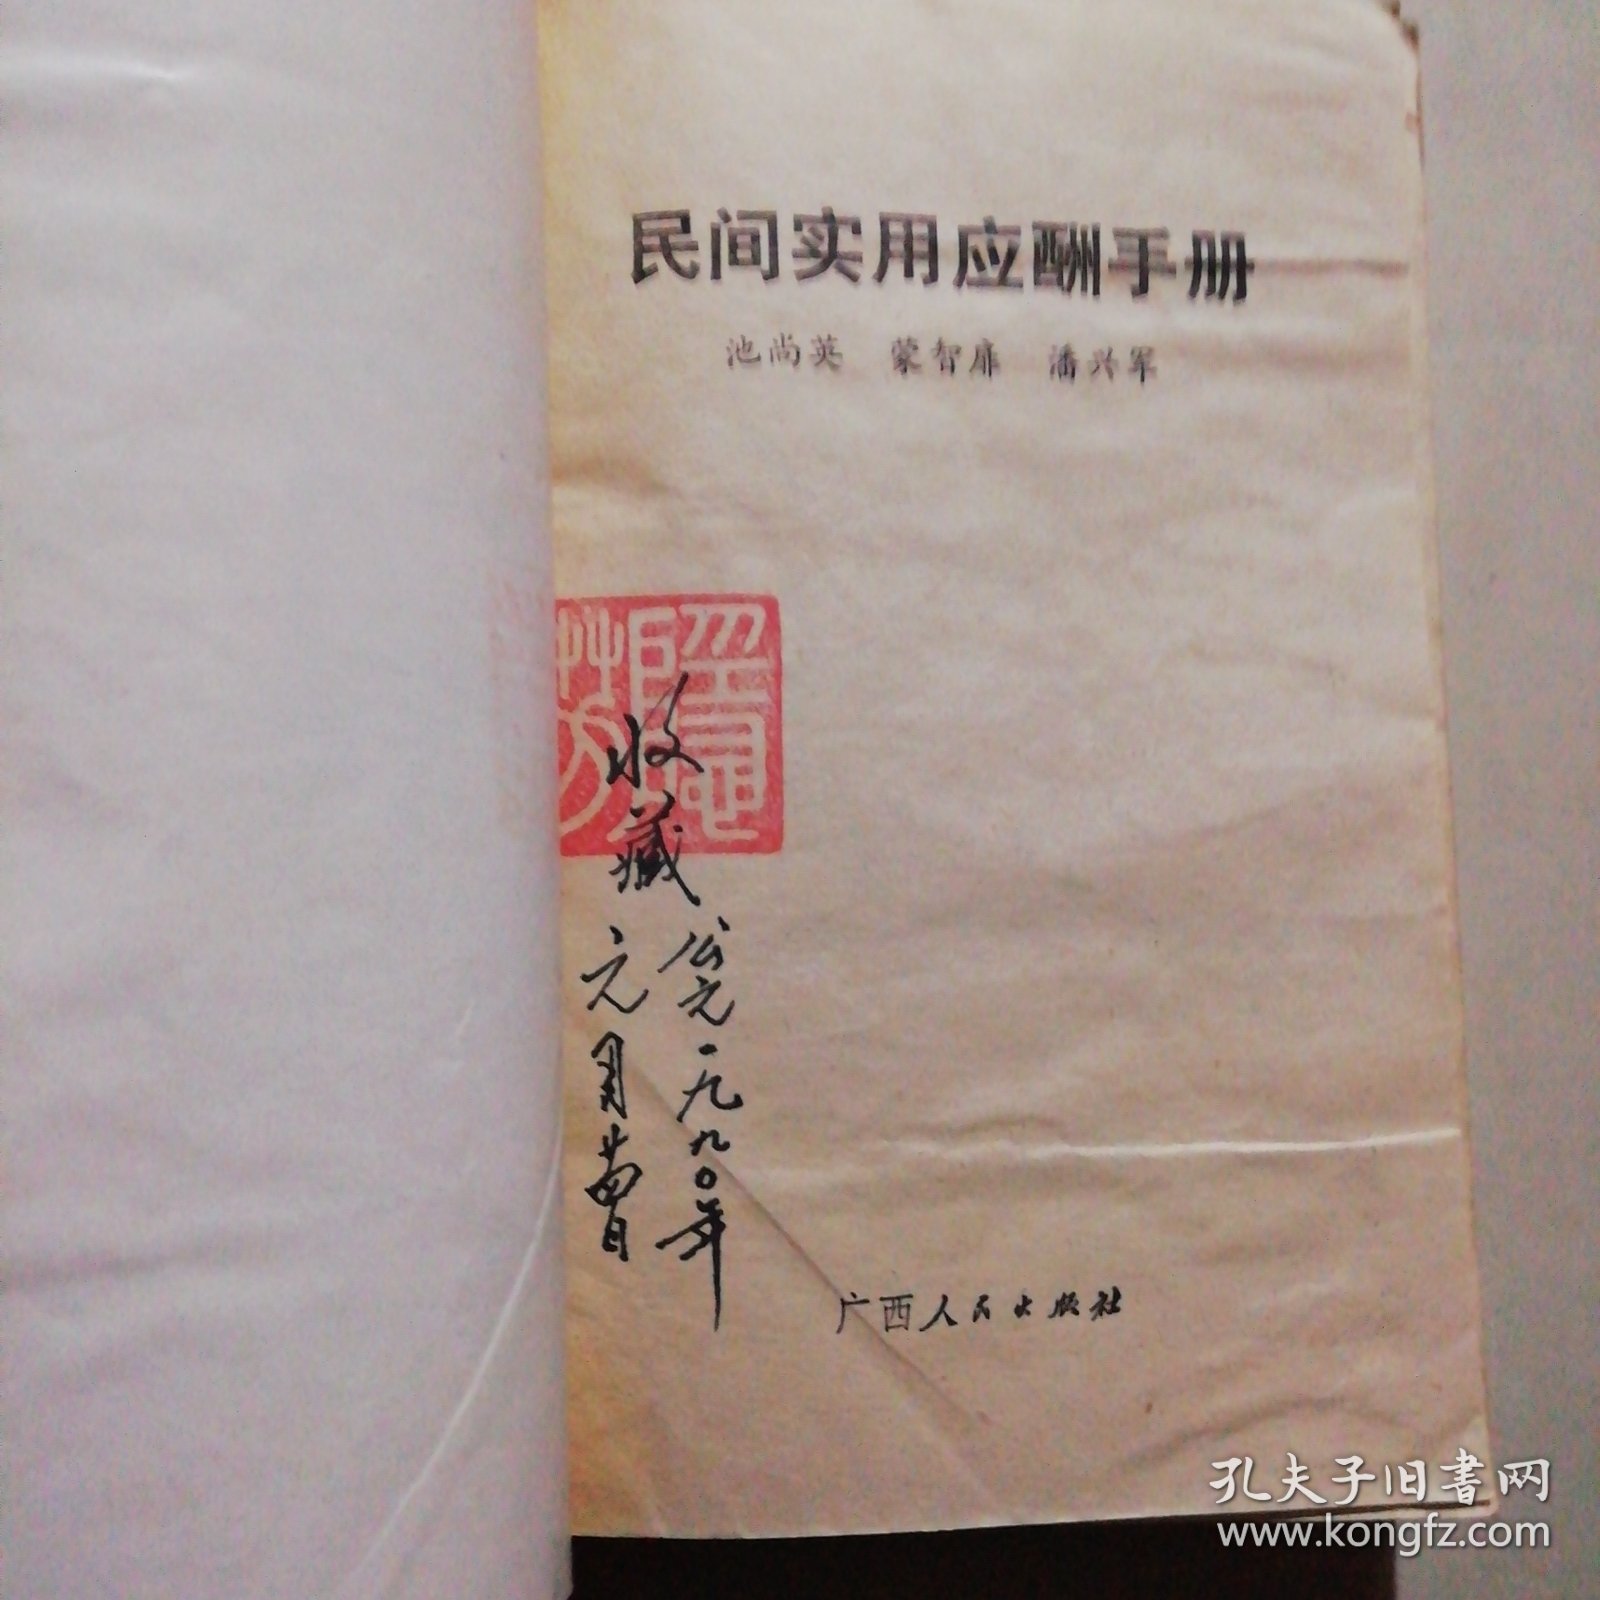 民间实用应酬手册
池尚英 蒙智扉 潘兴军
收藏
公元一九九〇年
元月
广西人民出版社
孔夫子旧書网
www.kongfz.com